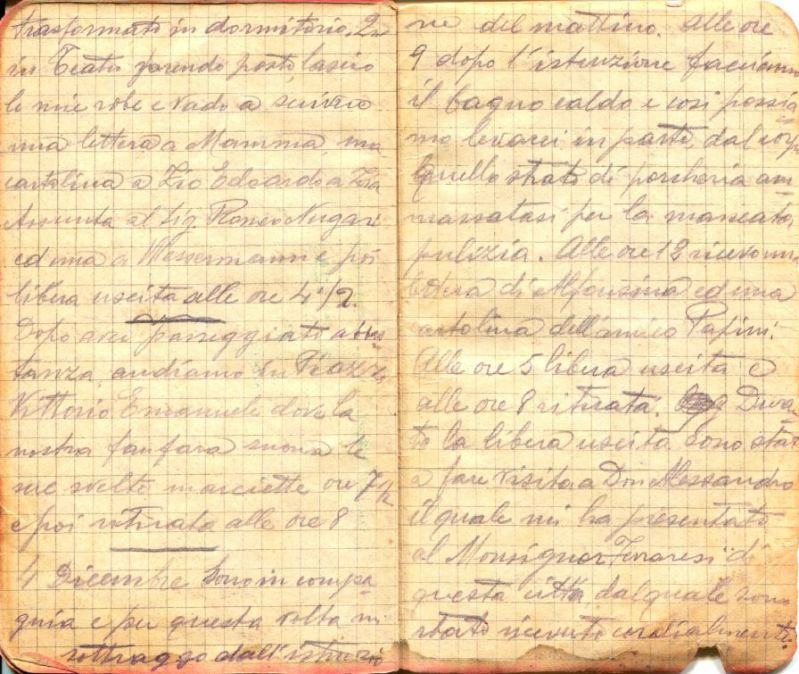 trasformato in dormitorio.
in Teatro prendo posto, lascio
le mie robe e vado a scrivere
una lettera a Mamma, una
cartolina a Zio Edoardo a Zia
Assunta al Sig. Romeo
ed una a Wessermann e poi
libera uscita alle ore 4 1/2.
Dopo aver passeggiato abbas
tanza, andiamo in Piazza
Vittorio Emanuele dove la
nostra fanfara suona le
sue svelte marciette ore 7 1/2
e poi ritirata alle ore 8
4 Dicembre Sono in compa
gnia e per questa volta mi
sottraggo dall'istruzio
ne del mattino. Alle ore
9 dopo l'istruzione facciamo
il bagno caldo e così possia
mo levarci in parte, dal corpo
quello strato di porcheria am
massatasi per la mancata
pulizia. Alle ore 12 ricevo una
lettera di Alfonsina ed una
cartolina dell'amico Papini.
Alle ore 5 libera uscita e
alle ore 8 ritirata. Duran
to la libera uscita sono stat
a fare visita a Don Alessandro
il quale mi ha presentato
al Monsignor di
questa città dal quale sono
stato ricevuto cordialmente.